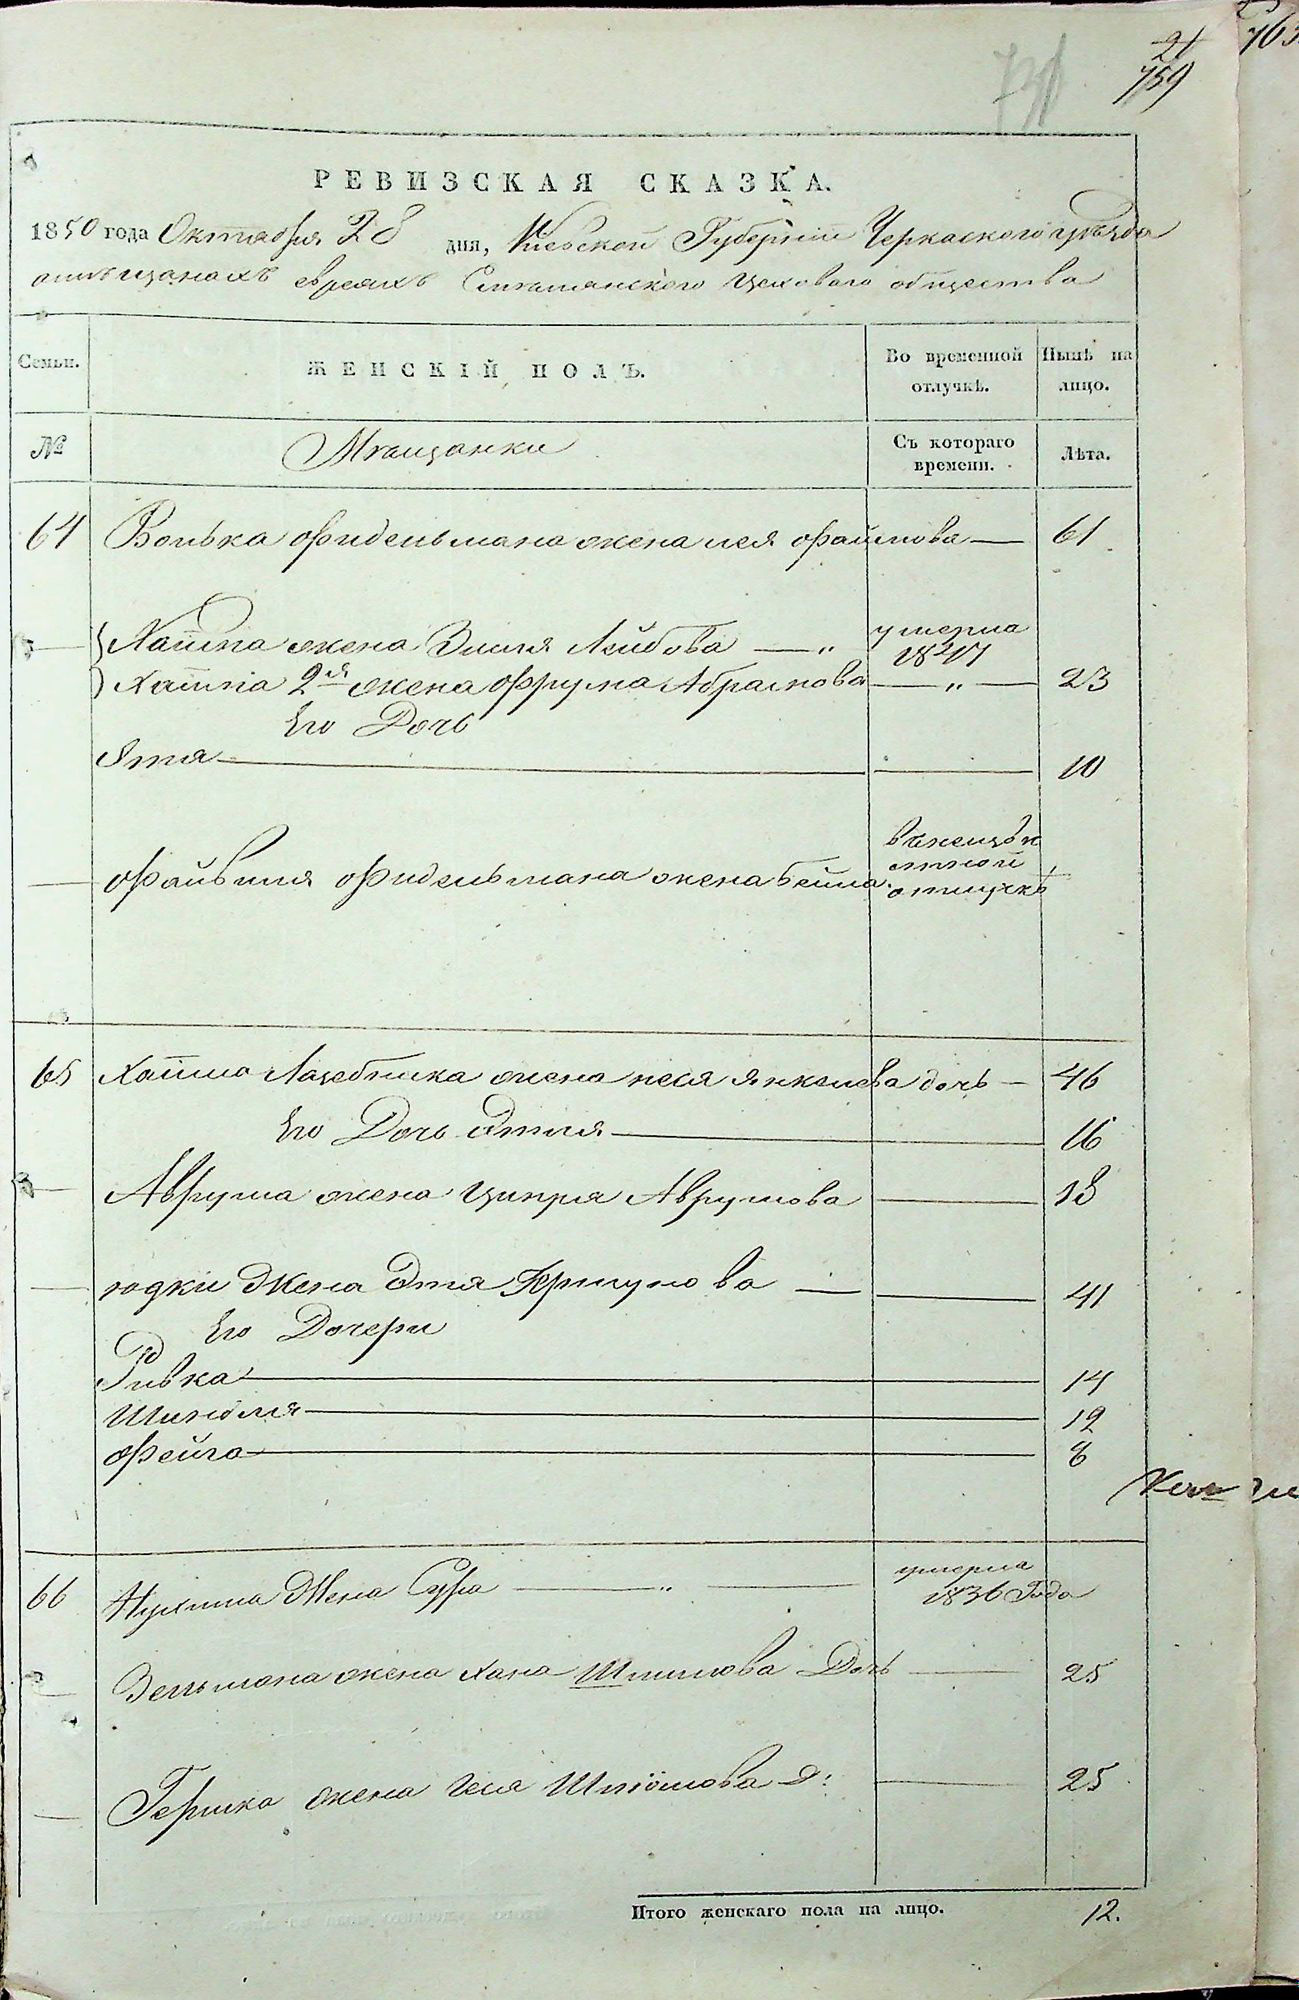 21
759
763
РЕВИЗСКАЯ СКАЗКА.
1850 года Октября 28 дня, Киевской Губернии Черкаского уезда
о мещанахъ евреяхъ Смелянского Цехового общества
Семьи.
ЖЕНСКІЙ ПОЛЪ.
Во временной отлучкѣ.
Нынѣ на лицо.
№
Мещанки
Съ котораго времени.
Лѣта.
64 Волька Фидельмана жена Лея Файмова — 61
Хаима жена Злотя Лейбова — „ умерла 1847
Хаима 2я жена Фрума Абрамова — „ — 23
Его Дочь
Этя 10
Файвиля Фидельмана жена Бейла в отлучкѣ
65 Хаима Лазебника жена Неся Янкелева дочь — 46
Его Дочь Этля 16
Аврума жена Ципря Аврумова 18
Юдки Жена Этя Гершунова — 41
Его Дочери
Ривка 14
Шинбля 12
Фейга 8
66 Нухима Жена Сура — „ — умерла 1836 Года
Зельмана жена Хана Шлиомова Дочь 25
Гершка жена Геля Шліомова д: 25
Итого женскаго пола на лицо. 12.